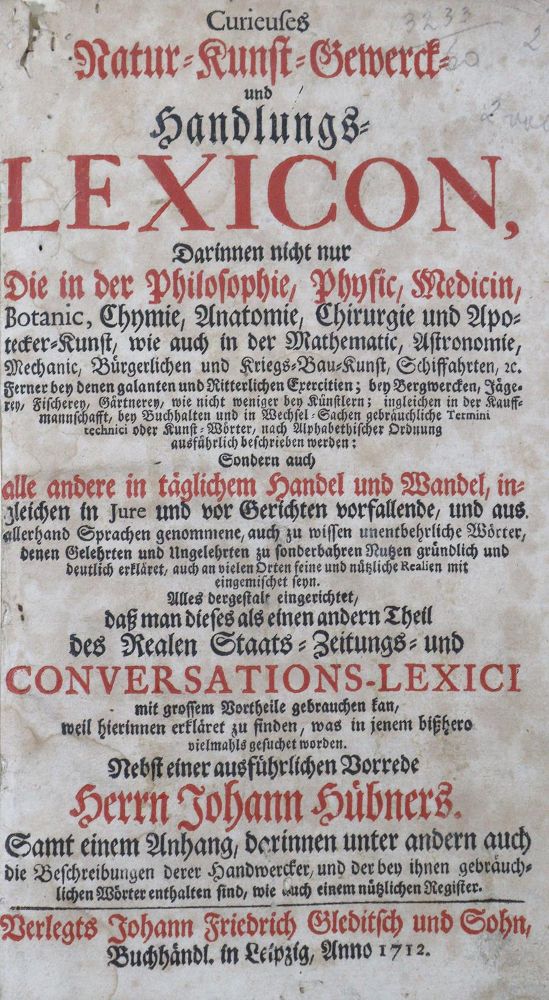 Curieuses
3233
60
2
Natur-Kunst-Gewerck-
und
2 vol
Handlungs-
LEXICON,
Darinnen nicht nur
Die in der Philosophie, Physic, Medicin,
Botanic, Chymie, Anatomie, Chirurgie und Apo-
tecker-Kunst, wie auch in der Mathematic, Astronomie,
Mechanic, Bürgerlichen und Kriegs-Bau-Kunst, Schiffahrten, ꝛc.
Ferner bey denen galanten und Ritterlichen Exercitien; bey Bergwercken, Jäge-
rey, Fischerey, Gärtnerey, wie nicht weniger bey Künstlern; ingleichen in der Kauff-
mannschafft, bey Buchhalten und in Wechsel-Sachen gebräuchliche Termini
technici oder Kunst-Wörter, nach Alphabethischer Ordnung
ausführlich beschrieben werden;
Sondern auch
alle andere in täglichem Handel und Wandel, in-
gleichen in Jure und vor Gerichten vorfallende, und aus
allerhand Sprachen genommene, auch zu wissen unentbehrliche Wörter,
denen Gelehrten und Ungelehrten zu sonderbahren Nutzen gründlich und
deutlich erkläret, auch an vielen Orten feine und nützliche Realien mit
eingemischet seyn.
Alles dergestalt eingerichtet,
daß man dieses als einen andern Theil
des Realen Staats-Zeitungs- und
CONVERSATIONS-LEXICI
mit grossem Vortheile gebrauchen kan,
weil hierinnen erkläret zu finden, was in jenem bißhero
vielmahls gesuchet worden.
Nebst einer ausführlichen Vorrede
Herrn Johann Hübners.
Samt einem Anhang, dorinnen unter andern auch
die Beschreibungen derer Handwercker, und der bey ihnen gebräuch-
lichen Wörter enthalten sind, wie auch einem nützlichen Register.
Verlegts Johann Friedrich Gleditsch und Sohn,
Buchhändl. in Leipzig, Anno 1712.